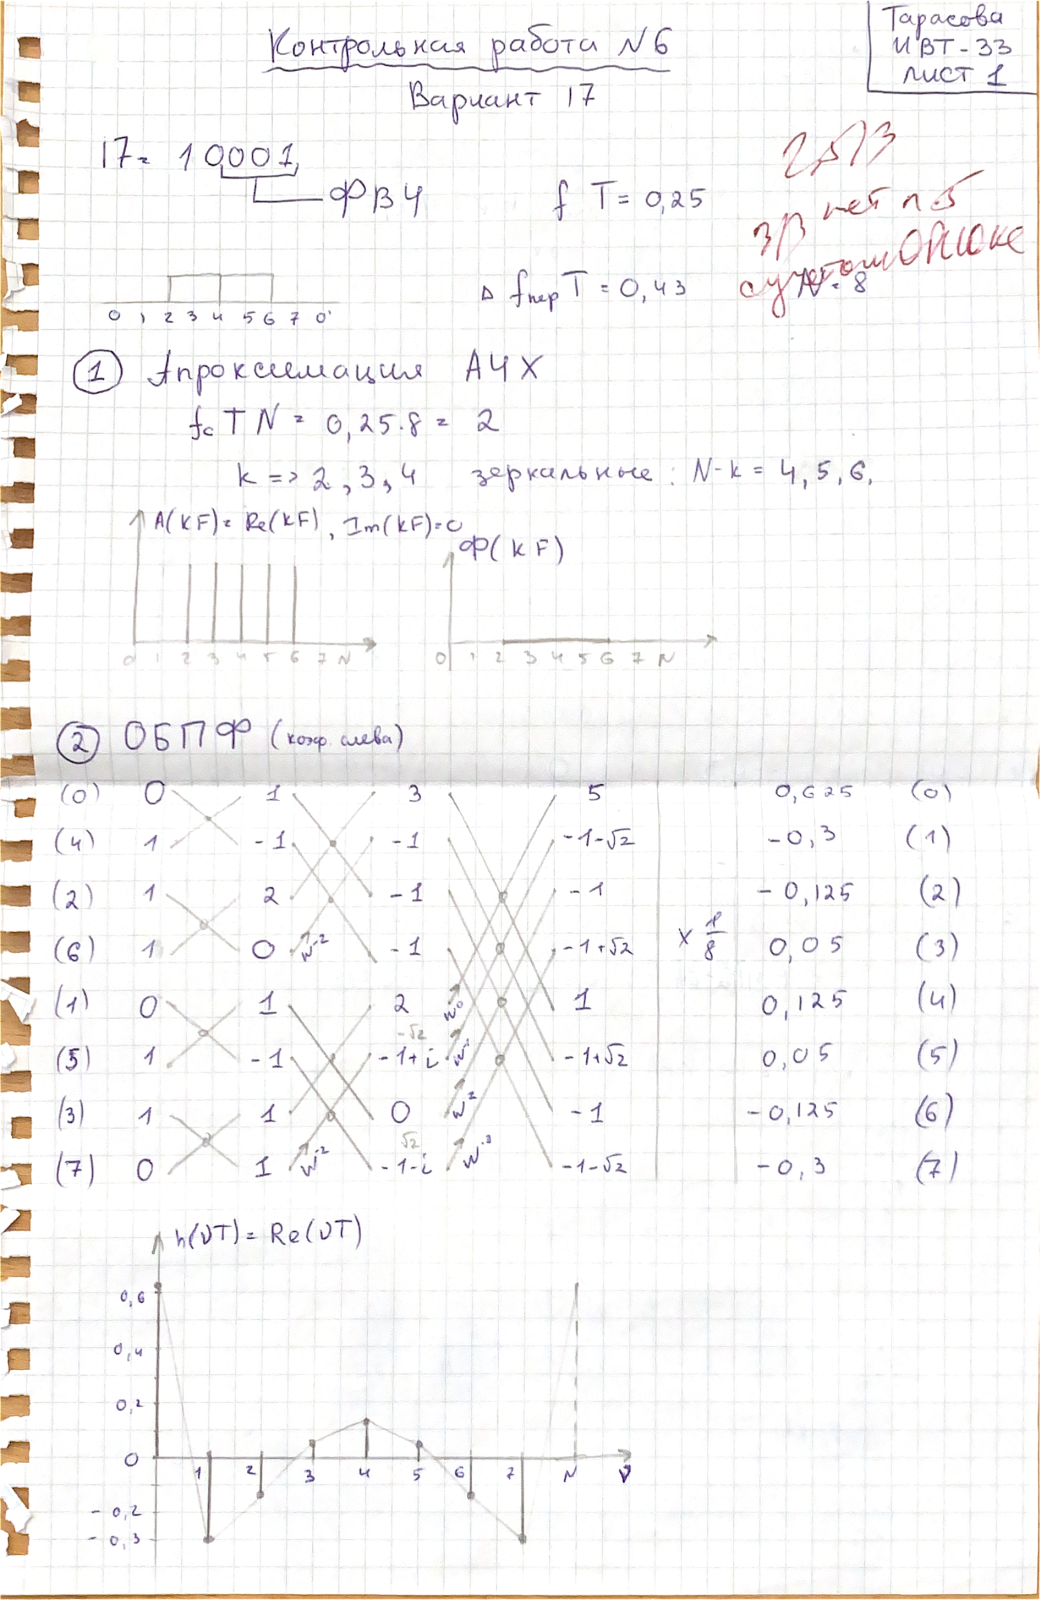 Контрольная работа N6
Вариант 17
Тарасова
ИВТ-33
лист 1
17= 10001
ФВЧ
f T = 0,25
2,5/3
3/3 нет п.5
с учетом
Δ fпер T = 0,43
N = 8
0 1 2 3 4 5 6 7 0'
① Апроксимация АЧХ
fc T N = 0,25·8 = 2
k => 2,3,4 зеркальные: N-k = 4,5,6,
A(KF)= Re(KF), Im(KF)=0
Ф(KF)
0 1 2 3 4 5 6 7 N
0 1 2 3 4 5 6 7 N
② ОБПФ (коэф. слева)
(0) 0 1 3 5 0,625 (0)
(4) 1 -1 -1 -1-√2 -0,3 (1)
(2) 1 2 -1 -1 -0,125 (2)
(6) 1 0 W-2 -1 -1+√2 × 1/8 0,05 (3)
(1) 0 1 2 W0 1 0,125 (4)
(5) 1 -1 -1+i -√2 -1+√2 0,05 (5)
(3) 1 1 0 W-2 -1 -0,125 (6)
(7) 0 1 W-2 -1-i √2 W-3 -1-√2 -0,3 (7)
h(νT) = Re(νT)
0,6
0,4
0,2
0
1 2 3 4 5 6 7 N ν
-0,2
-0,3